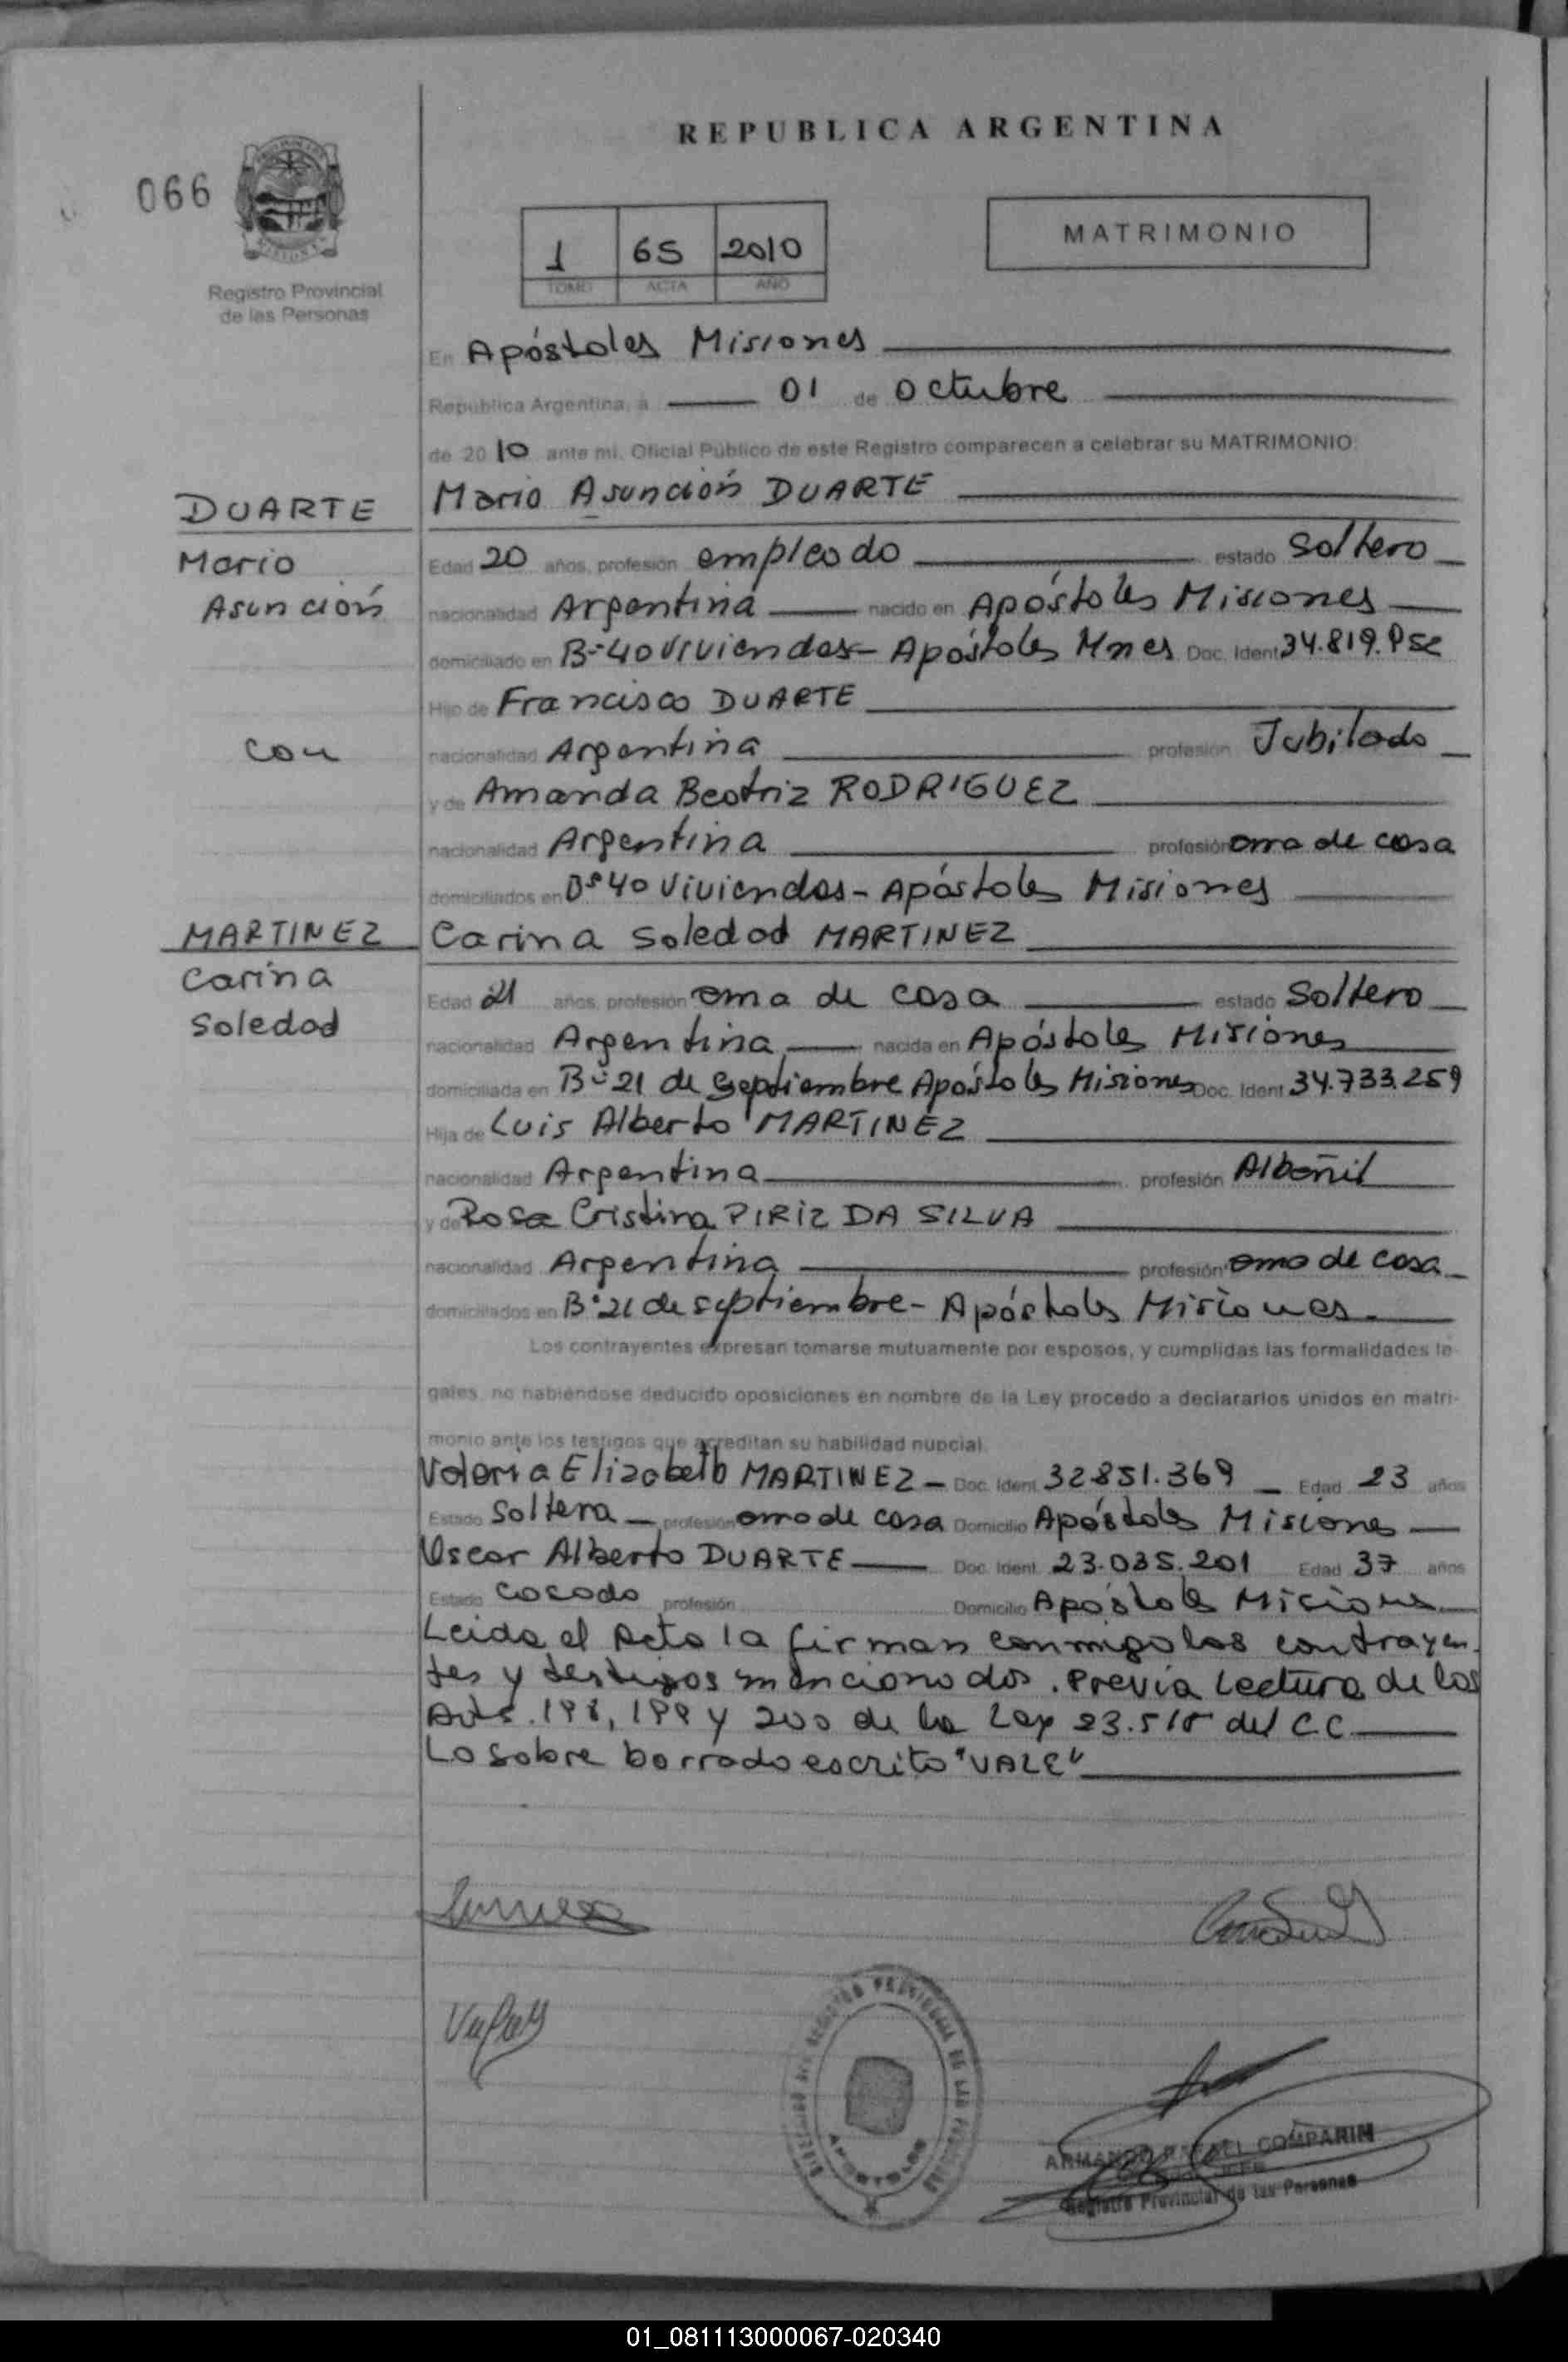 REPUBLICA ARGENTINA
066
1 65 2010
TOMO ACTA AÑO
MATRIMONIO
Registro Provincial
de las Personas
En Apóstoles Misiones
República Argentina, a 01 de Octubre
de 2010 ante mi, Oficial Público de este Registro comparecen a celebrar su MATRIMONIO:
DUARTE
Mario Asunción DUARTE
Mario
Edad 20 años, profesión empleado estado Soltero
Asunción
nacionalidad Argentina nacido en Apóstoles Misiones
domiciliado en B° 40 Viviendas - Apóstoles Mnes Doc. Ident 34.819.
Hijo de Francisco DUARTE
con
nacionalidad Argentina profesión Jubilado
y de Amanda Beatriz RODRIGUEZ
nacionalidad Argentina profesión ama de casa
domiciliados en B° 40 Viviendas - Apóstoles Misiones
MARTINEZ
Carina Soledad MARTINEZ
Carina
Edad 21 años, profesión ama de casa estado Soltero
Soledad
nacionalidad Argentina nacida en Apóstoles Misiones
domiciliada en B° 21 de Septiembre Apóstoles Misiones Doc. Ident 34.733.259
Hija de Luis Alberto MARTINEZ
nacionalidad Argentina profesión Albañil
y de Rosa Cristina PIRIZ DA SILVA
nacionalidad Argentina profesión ama de casa
domiciliados en B° 21 de septiembre - Apóstoles Misiones
Los contrayentes expresan tomarse mutuamente por esposos, y cumplidas las formalidades le-
gales, no habiéndose deducido oposiciones en nombre de la Ley procedo a declararlos unidos en matri-
monio ante los testigos que acreditan su habilidad nupcial.
Valeria Elizabeth MARTINEZ - Doc. Ident. 32851.369 Edad 23 años
Estado Soltera profesión ama de casa Domicilio Apóstoles Misiones
Oscar Alberto DUARTE Doc. Ident. 23.035.201 Edad 37 años
Estado Casado profesión Domicilio Apóstoles Misiones
Leida el Acta la firman conmigo los contrayen-
tes y testigos mencionados. Previa Lectura de los
Arts. 198, 199 y 200 de la Ley 23.515 del C.C.
Lo sobre borrado escrito "VALE"
APOSTOLES
ARMANDO RAFAEL COMPARIN
Registro Provincial de las Personas
01_081113000067-020340